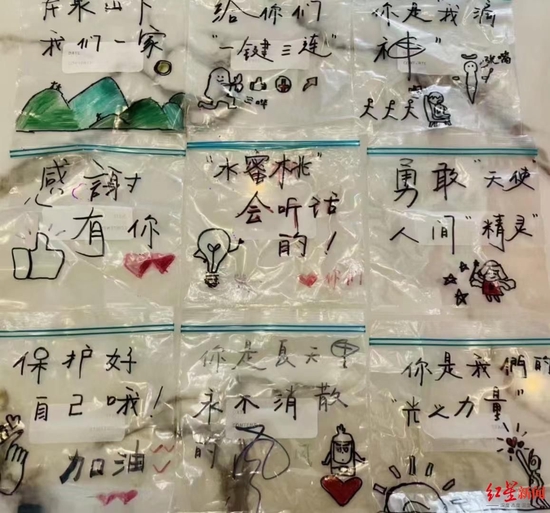 我们一家
给你们
"一键三连"
你是"我滴
神"
大大大
感謝
有你
"水蜜桃"
会听话
的!
你们
勇敢"天使
人间"精灵"
保护好
自己哦!
加油
你是夏天里
永不消散
的
你是我們的
"光之力量"
红星新闻